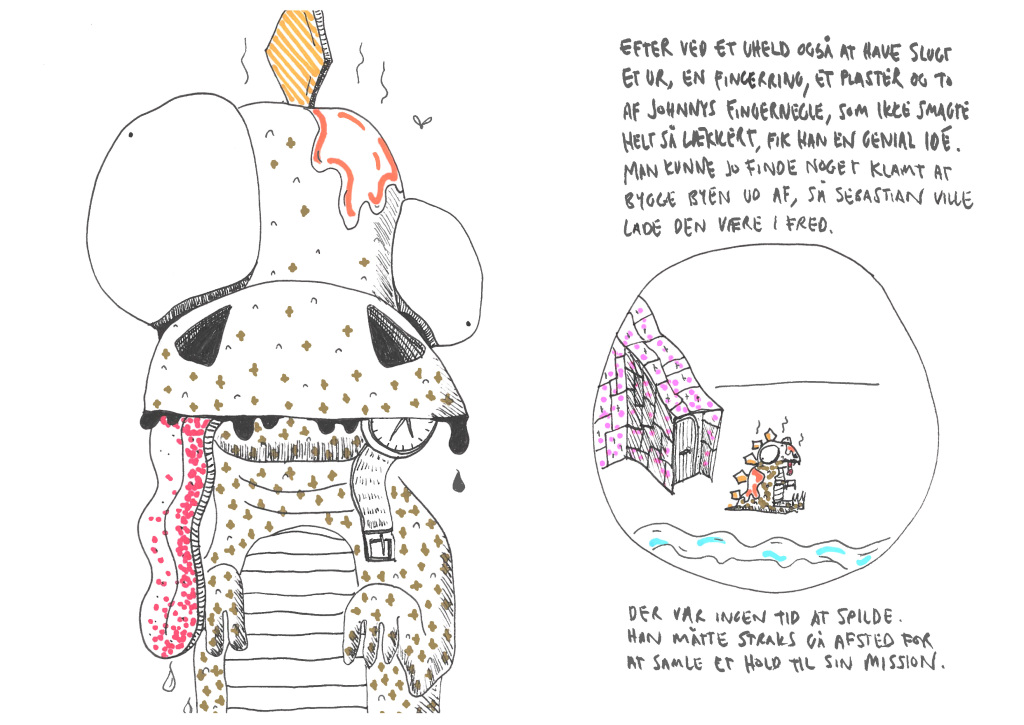 EFTER VED ET UHELD OGSÅ AT HAVE SLUGT
ET UR, EN FINGERRING, ET PLASTER OG TO
AF JOHNNYS FINGERNEGLE, SOM IKKE SMAGTE
HELT SÅ LÆKKERT, FIK HAN EN GENIAL IDÉ.
MAN KUNNE JO FINDE NOGET KLAMT AT
BYGGE BYEN UD AF, SÅ SEBASTIAN VILLE
LADE DEN VÆRE I FRED.
DER VAR INGEN TID AT SPILDE.
HAN MÅTTE STRAKS GÅ AFSTED FOR
AT SAMLE ET HOLD TIL SIN MISSION.